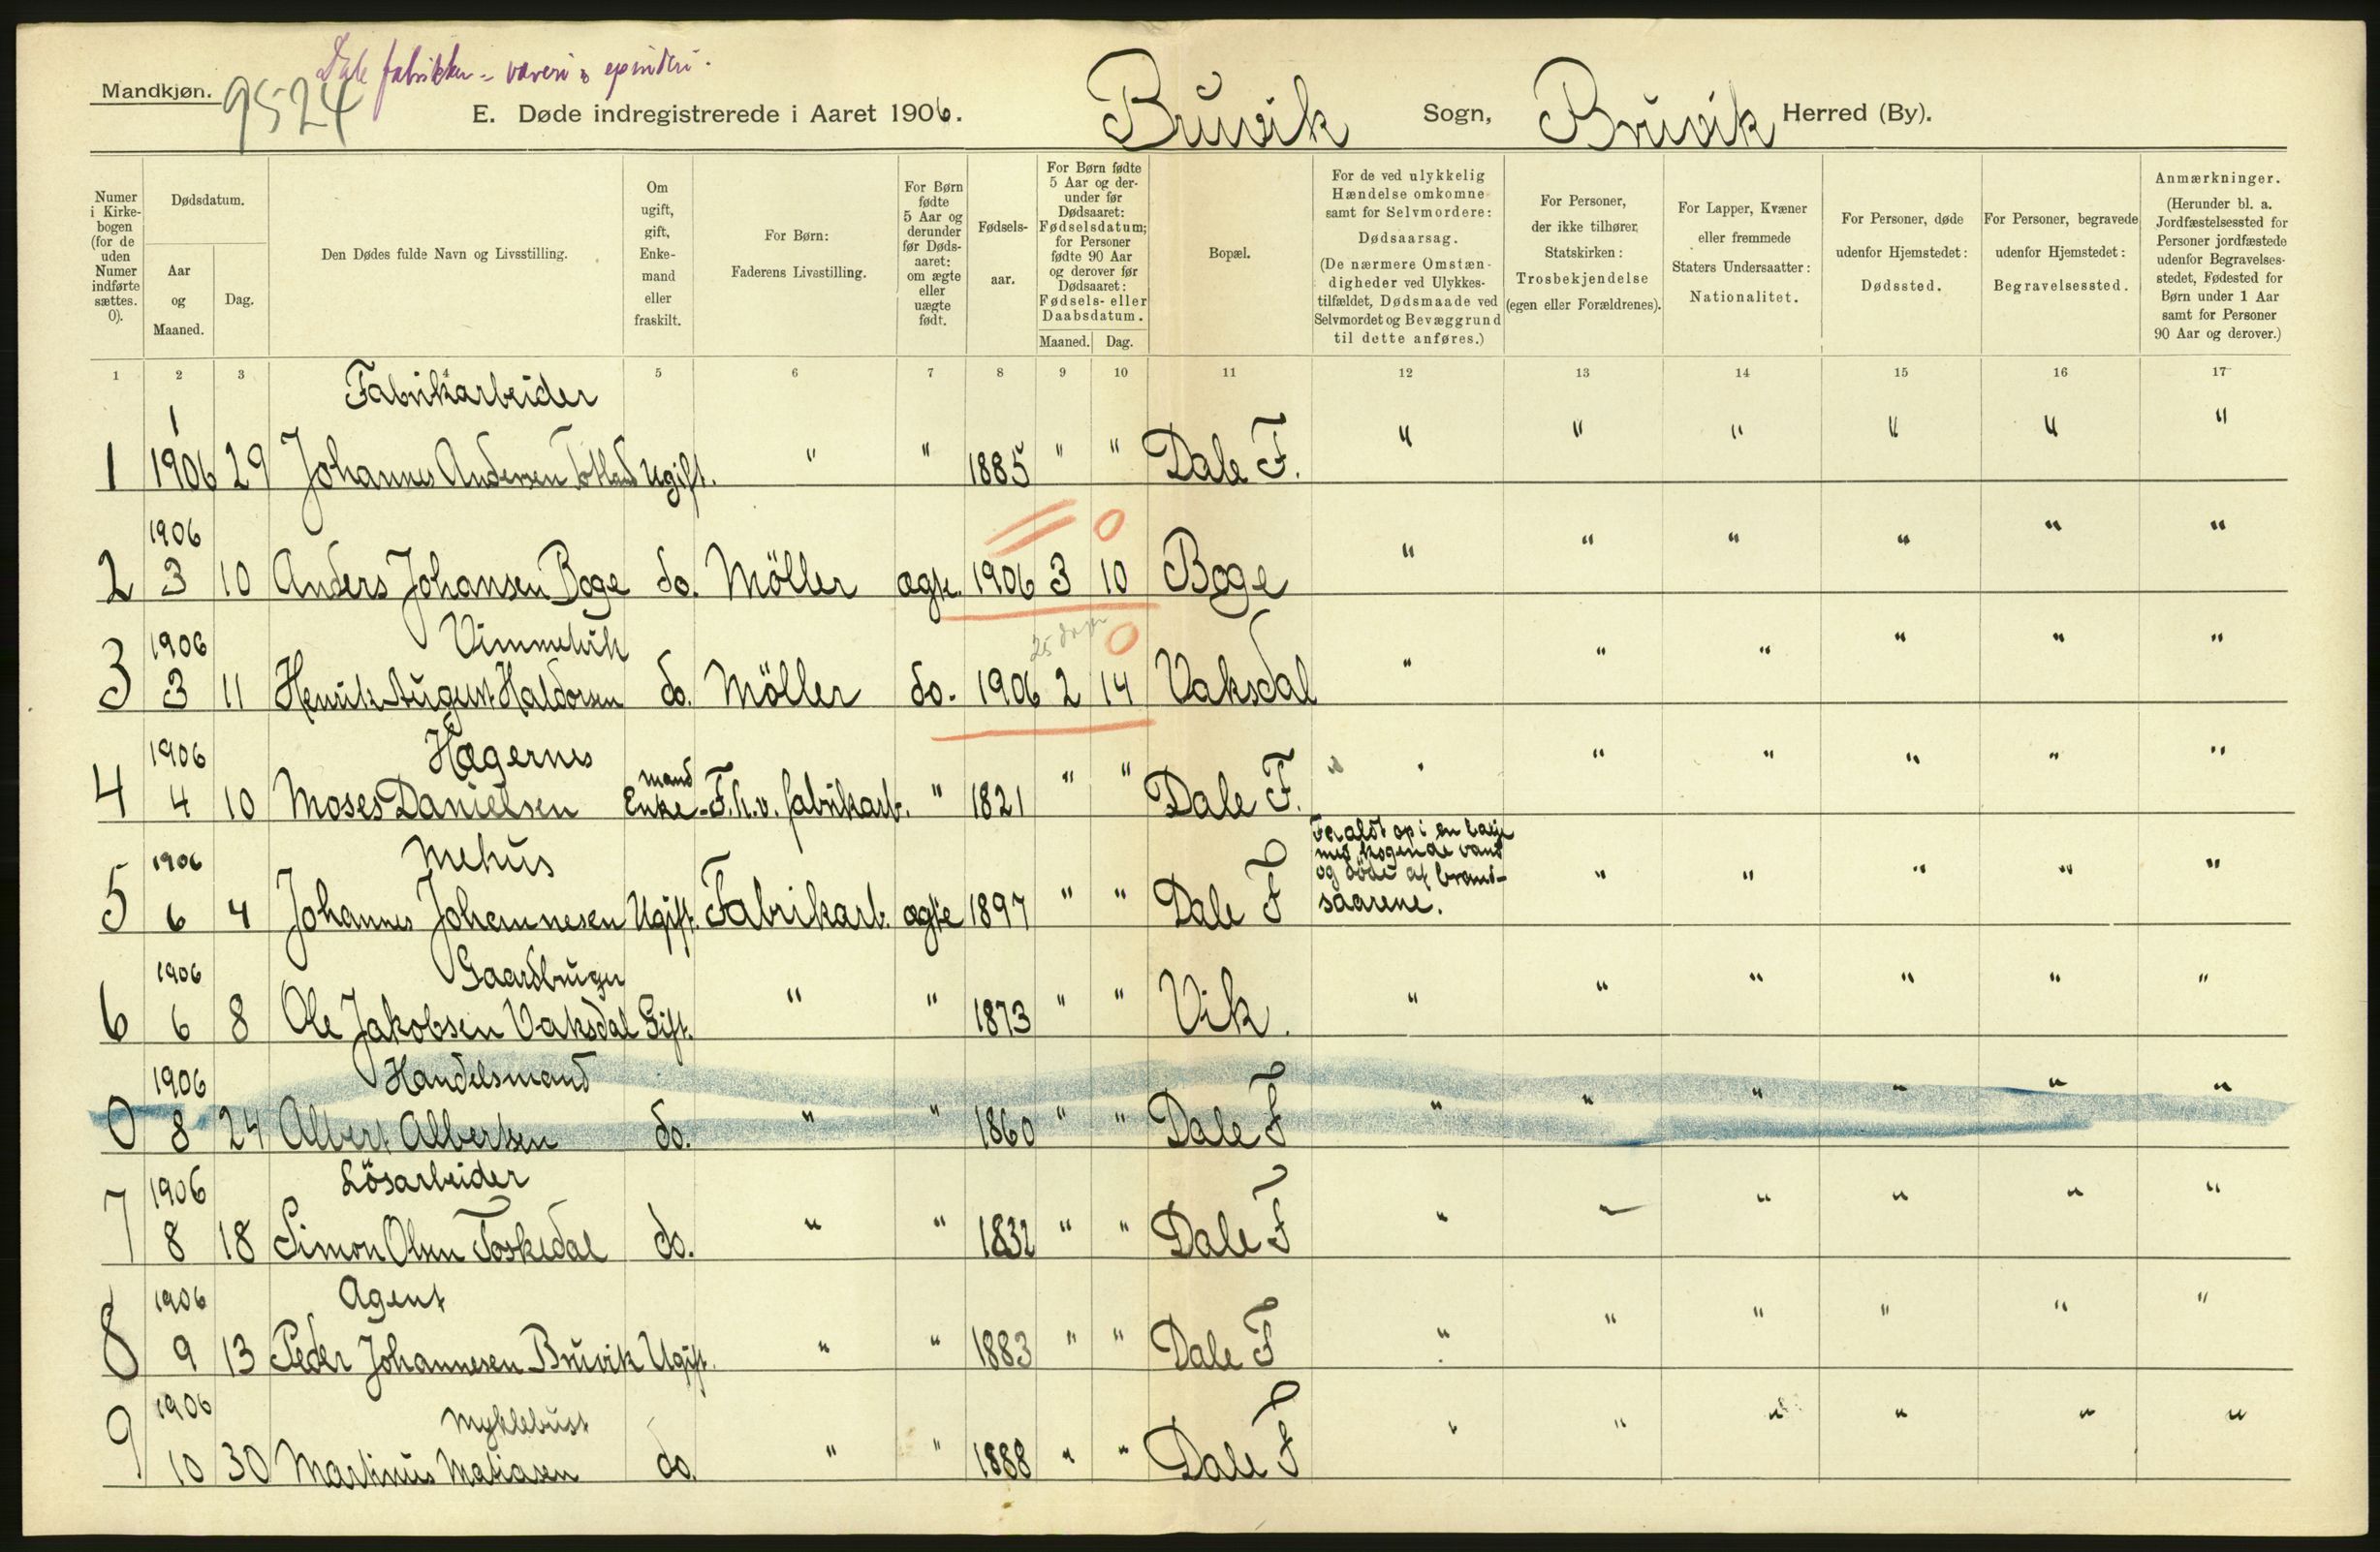 Dale fabrikker - væveri & spinderi.
Mandkjøn.
9524
E. Døde indregistrerede i Aaret 1906.
Bruvik Sogn, Bruvik Herred (By).
Numer i Kirke-bogen (for de uden Numer indførte sættes. 0).
Dødsdatum.
Aar og Maaned.
Dag.
Den Dødes fulde Navn og Livsstilling.
Om ugift, gift, Enke-mand eller fraskilt.
For Børn: Faderens Livsstilling.
For Børn fødte 5 Aar og derunder før Døds-aaret: om ægte eller uægte født.
Fødsels-aar.
For Børn fødte 5 Aar og der-under før Dødsaaret: Fødselsdatum; for Personer fødte 90 Aar og derover før Dødsaaret: Fødsels- eller Daabsdatum.
Maaned. Dag.
Bopæl.
For de ved ulykkelig Hændelse omkomne samt for Selvmordere: Dødsaarsag. (De nærmere Omstæn-digheder ved Ulykkes-tilfældet, Dødsmaade ved Selvmordet og Bevæggrund til dette anføres.)
For Personer, der ikke tilhører Statskirken: Trosbekjendelse (egen eller Forældrenes).
For Lapper, Kvæner eller fremmede Staters Undersaatter: Nationalitet.
For Personer, døde udenfor Hjemstedet: Dødssted.
For Personer, begravede udenfor Hjemstedet: Begravelsessted.
Anmærkninger. (Herunder bl. a. Jordfæstelsessted for Personer jordfæstede udenfor Begravelses-stedet, Fødested for Børn under 1 Aar samt for Personer 90 Aar og derover.)
1 2 3 5 6 7 8 9 10 11 12 13 14 15 16 17
1 Fabrikarbeider
1 1906 29 Johannes Andersen Totland Ugift. " " 1885 " " Dale F. " " " " " "
1906 0
2 3 10 Anders Johansen Boge do. Möller ægte. 1906 3 10 Boge " " " " " "
1906 Vimmelvik 25 dage 0
3 3 11 Henrik August Haldorsen do. Möller do. 1906 2 14 Vaksdal " " " " " "
1906 Hægernes mand
4 4 10 Moses Danielsen Enke- F.h.v. fabrikarb. " 1821 " " Dale F. " " " " " "
1906 Mehus
5 6 4 Johannes Johannesen Ugift. Fabrikarb. ægte 1897 " " Dale F
Faldt op i en balje
med kogende vand
og döde af brand-
saarene. " " " " "
1906 Gaardbruger
6 6 8 Ole Jakobsen Vaksdal Gift. " " 1873 " " Vik. " " " " " "
1906 Handelsmand
0 8 24 Albert Albertsen do. " " 1860 " " Dale F " " " " " "
1906 Lösarbeider
7 8 18 Simon Olsen Toskedal do. " " 1832 " " Dale F " " " " " "
1906 Agent
8 9 13 Peder Johannesen Bruvik Ugift. " " 1883 " " Dale F " " " " " "
1906 Myklebust
9 10 30 Martinus Matiasen do. " " 1888 " " Dale F " " " " " "